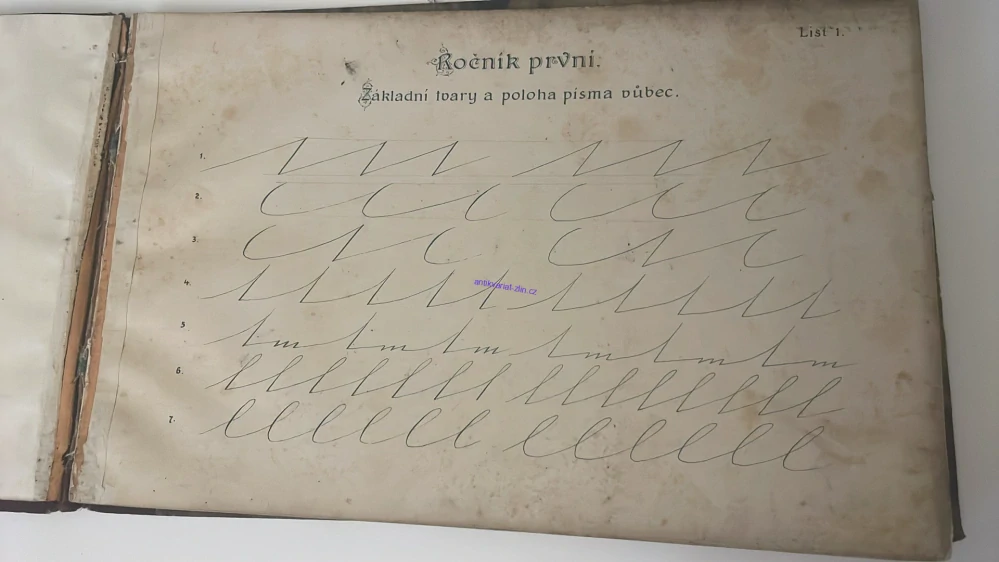 List 1.
Ročník první.
Základní tvary a poloha písma vůbec.
1.
2.
3.
4.
antikvariat-zlin.cz
5
6.
7.